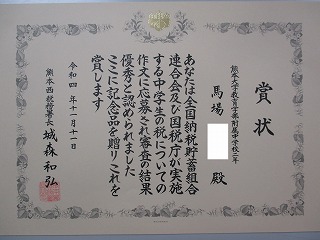 賞状
熊本大学教育学部附属中学校二年
馬場 殿
あなたは全国納税貯蓄組合
連合会及び国税庁が実施
する中学生の税についての
作文に応募され審査の結果
優秀と認められました
ここに記念品を贈りこれを
賞します
令和四年十一月十一日
熊本西税務署長 城森和弘